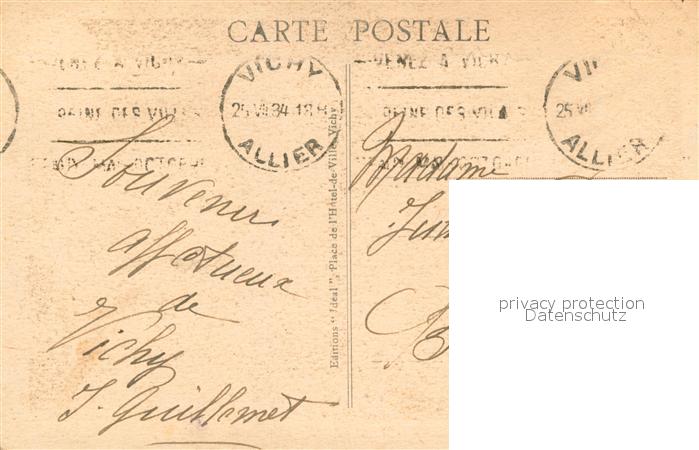 CARTE POSTALE
VENEZ A VICHY
REINE DES VILLES
MAI OCTOBRE
VICHY
25 VII 34 18H
ALLIER
VENEZ A VICHY
REINE DES VILLES
VI
25 VII
ALLIER
Souvenir
affectueux
de
Vichy
J. Guillemet
Editions "Idéal", Place de l'Hôtel-de-Ville, Vichy
Madame
privacy protection
Datenschutz